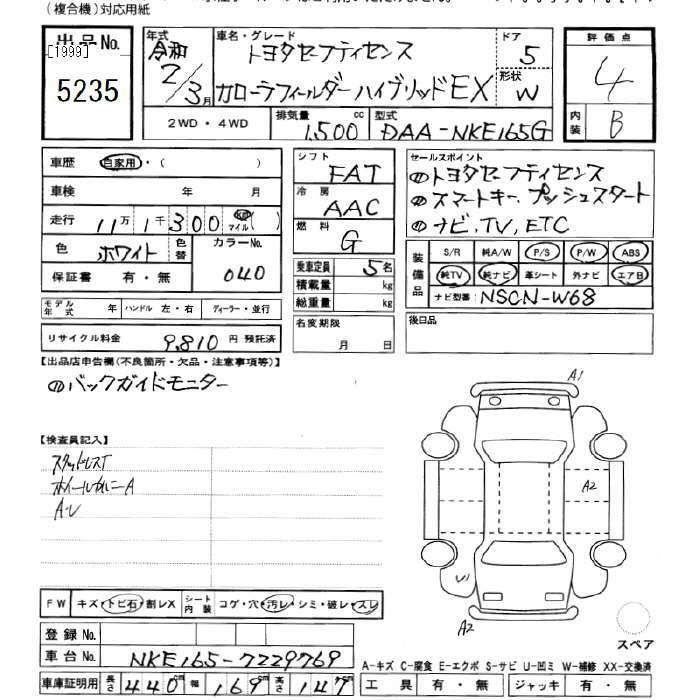 (複合機)対応用紙
出品No.
[1999]
5235
年式 令和 2/3月
車名・グレード トヨタセーフティセンス
カローラフィールダーハイブリッドEX
ドア 5
形状 W
評価点 4
内装 B
2WD・4WD
排気量 1,500 cc
型式 DAA-NKE165G
車歴 自家用・( )
車検 年 月
走行 11万1千300 km マイル ( )
色 ホワイト 色替 カラーNo. 040
保証書 有・無
モデル年式 年 ハンドル 左・右 ディーラー・並行
リサイクル料金 9,810 円 預託済
シフト FAT
冷房 AAC
燃料 G
乗車定員 5名
積載量 kg
総重量 kg
名変期限
月 日
セールスポイント
①トヨタセーフティセンス
①スマートキー、プッシュスタート
①ナビ、TV、ETC
装備品 S/R 純A/W P/S P/W ABS
純TV 純ナビ 革シート 外ナビ エアB
ナビ型番: NSCN-W68
後日品
【出品店申告欄(不良箇所・欠品・注意事項等)】
①バックガイドモニター
【検査員記入】
スタッドレスT
A・U
A1
A2
U1
A2
スペア
FW キズ・トビ石・割レX シート内装 コゲ・穴・汚レ・シミ・破レ・スレ
登録No.
車台No. NKE165-7229769
車庫証明用 長さ 440 幅 169 高さ 147
A-キズ C-腐食 E-エクボ S-サビ U-凹ミ W-補修 XX-交換済
工具 有・無 ジャッキ 有・無